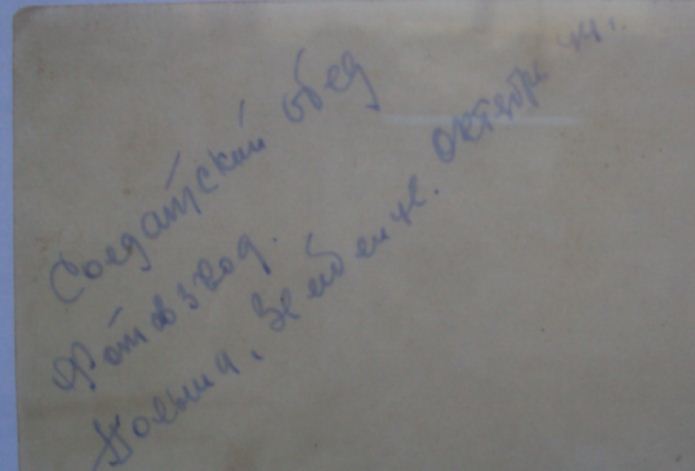 Солдатский обед
Фотовзвод.
Польша, Зембенце. Октябрь 44.